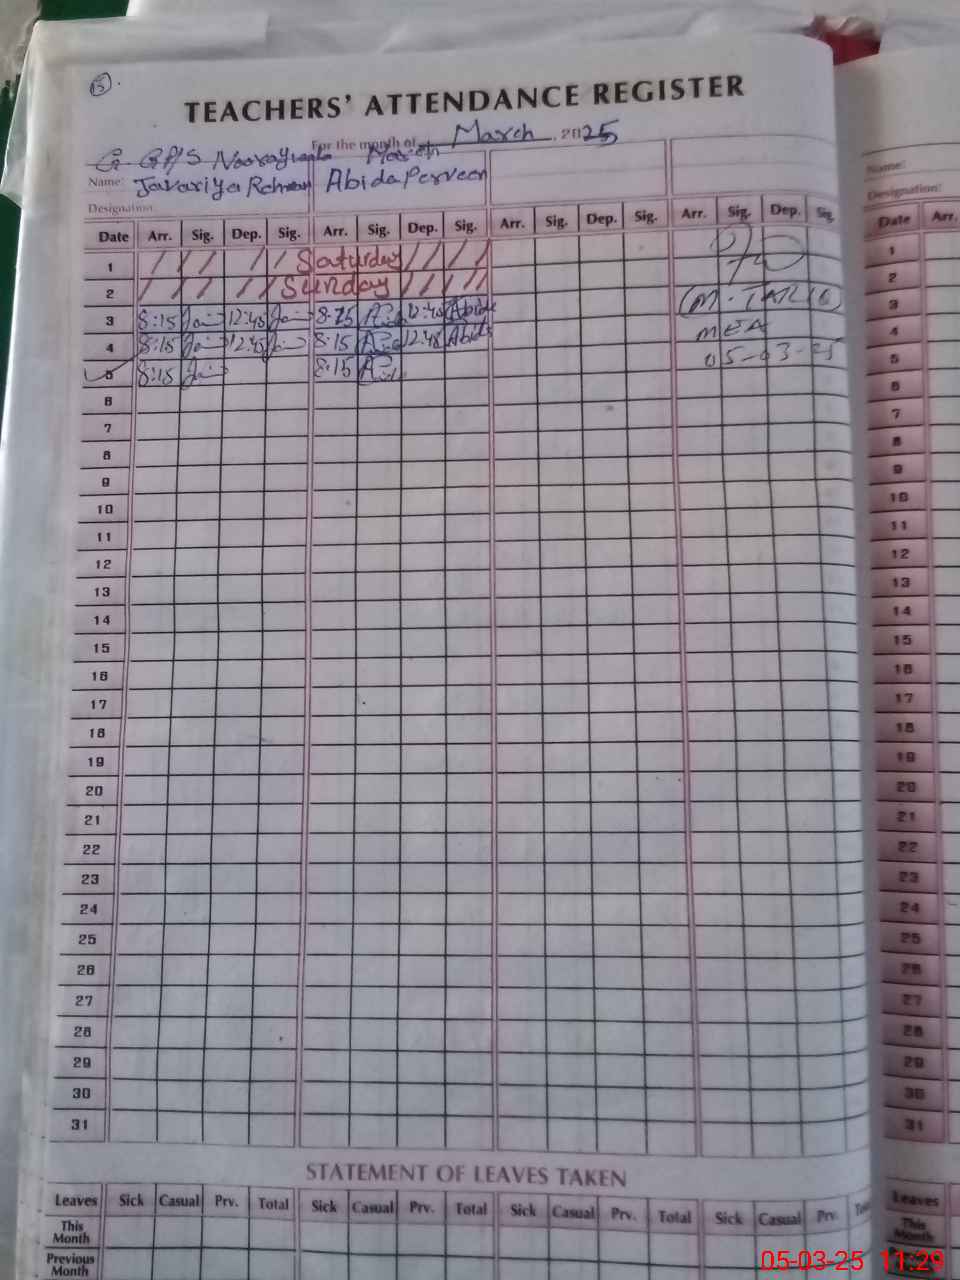 15
TEACHERS' ATTENDANCE REGISTER
For the month of March 2025
G. GP/S March
Name: Javariya Rehman Abida Perveen
Designation:
Date Arr. Sig. Dep. Sig. Arr. Sig. Dep. Sig. Arr. Sig. Dep. Sig. Arr. Sig. Dep. Sig.
1 / / / / / Saturday / / / /
2 / / / / / Sunday / / / /
3 8:15 12:45 8:15 12:45 Abida (M. TARIQ)
4 8:15 12:45 8:15 12:45 Abida MEA
5 8:15 8:15 05-03-25
6
7
8
9
10
11
12
13
14
15
16
17
18
19
20
21
22
23
24
25
26
27
28
29
30
31
STATEMENT OF LEAVES TAKEN
Leaves Sick Casual Prv. Total Sick Casual Prv. Total Sick Casual Prv. Total Sick Casual Prv.
This Month
Previous Month
Name:
Designation:
Date Arr.
1
2
3
4
5
6
7
8
9
10
11
12
13
14
15
16
17
18
19
20
21
22
23
24
25
26
27
28
29
30
31
Leaves
This Month
05-03-25 11:29